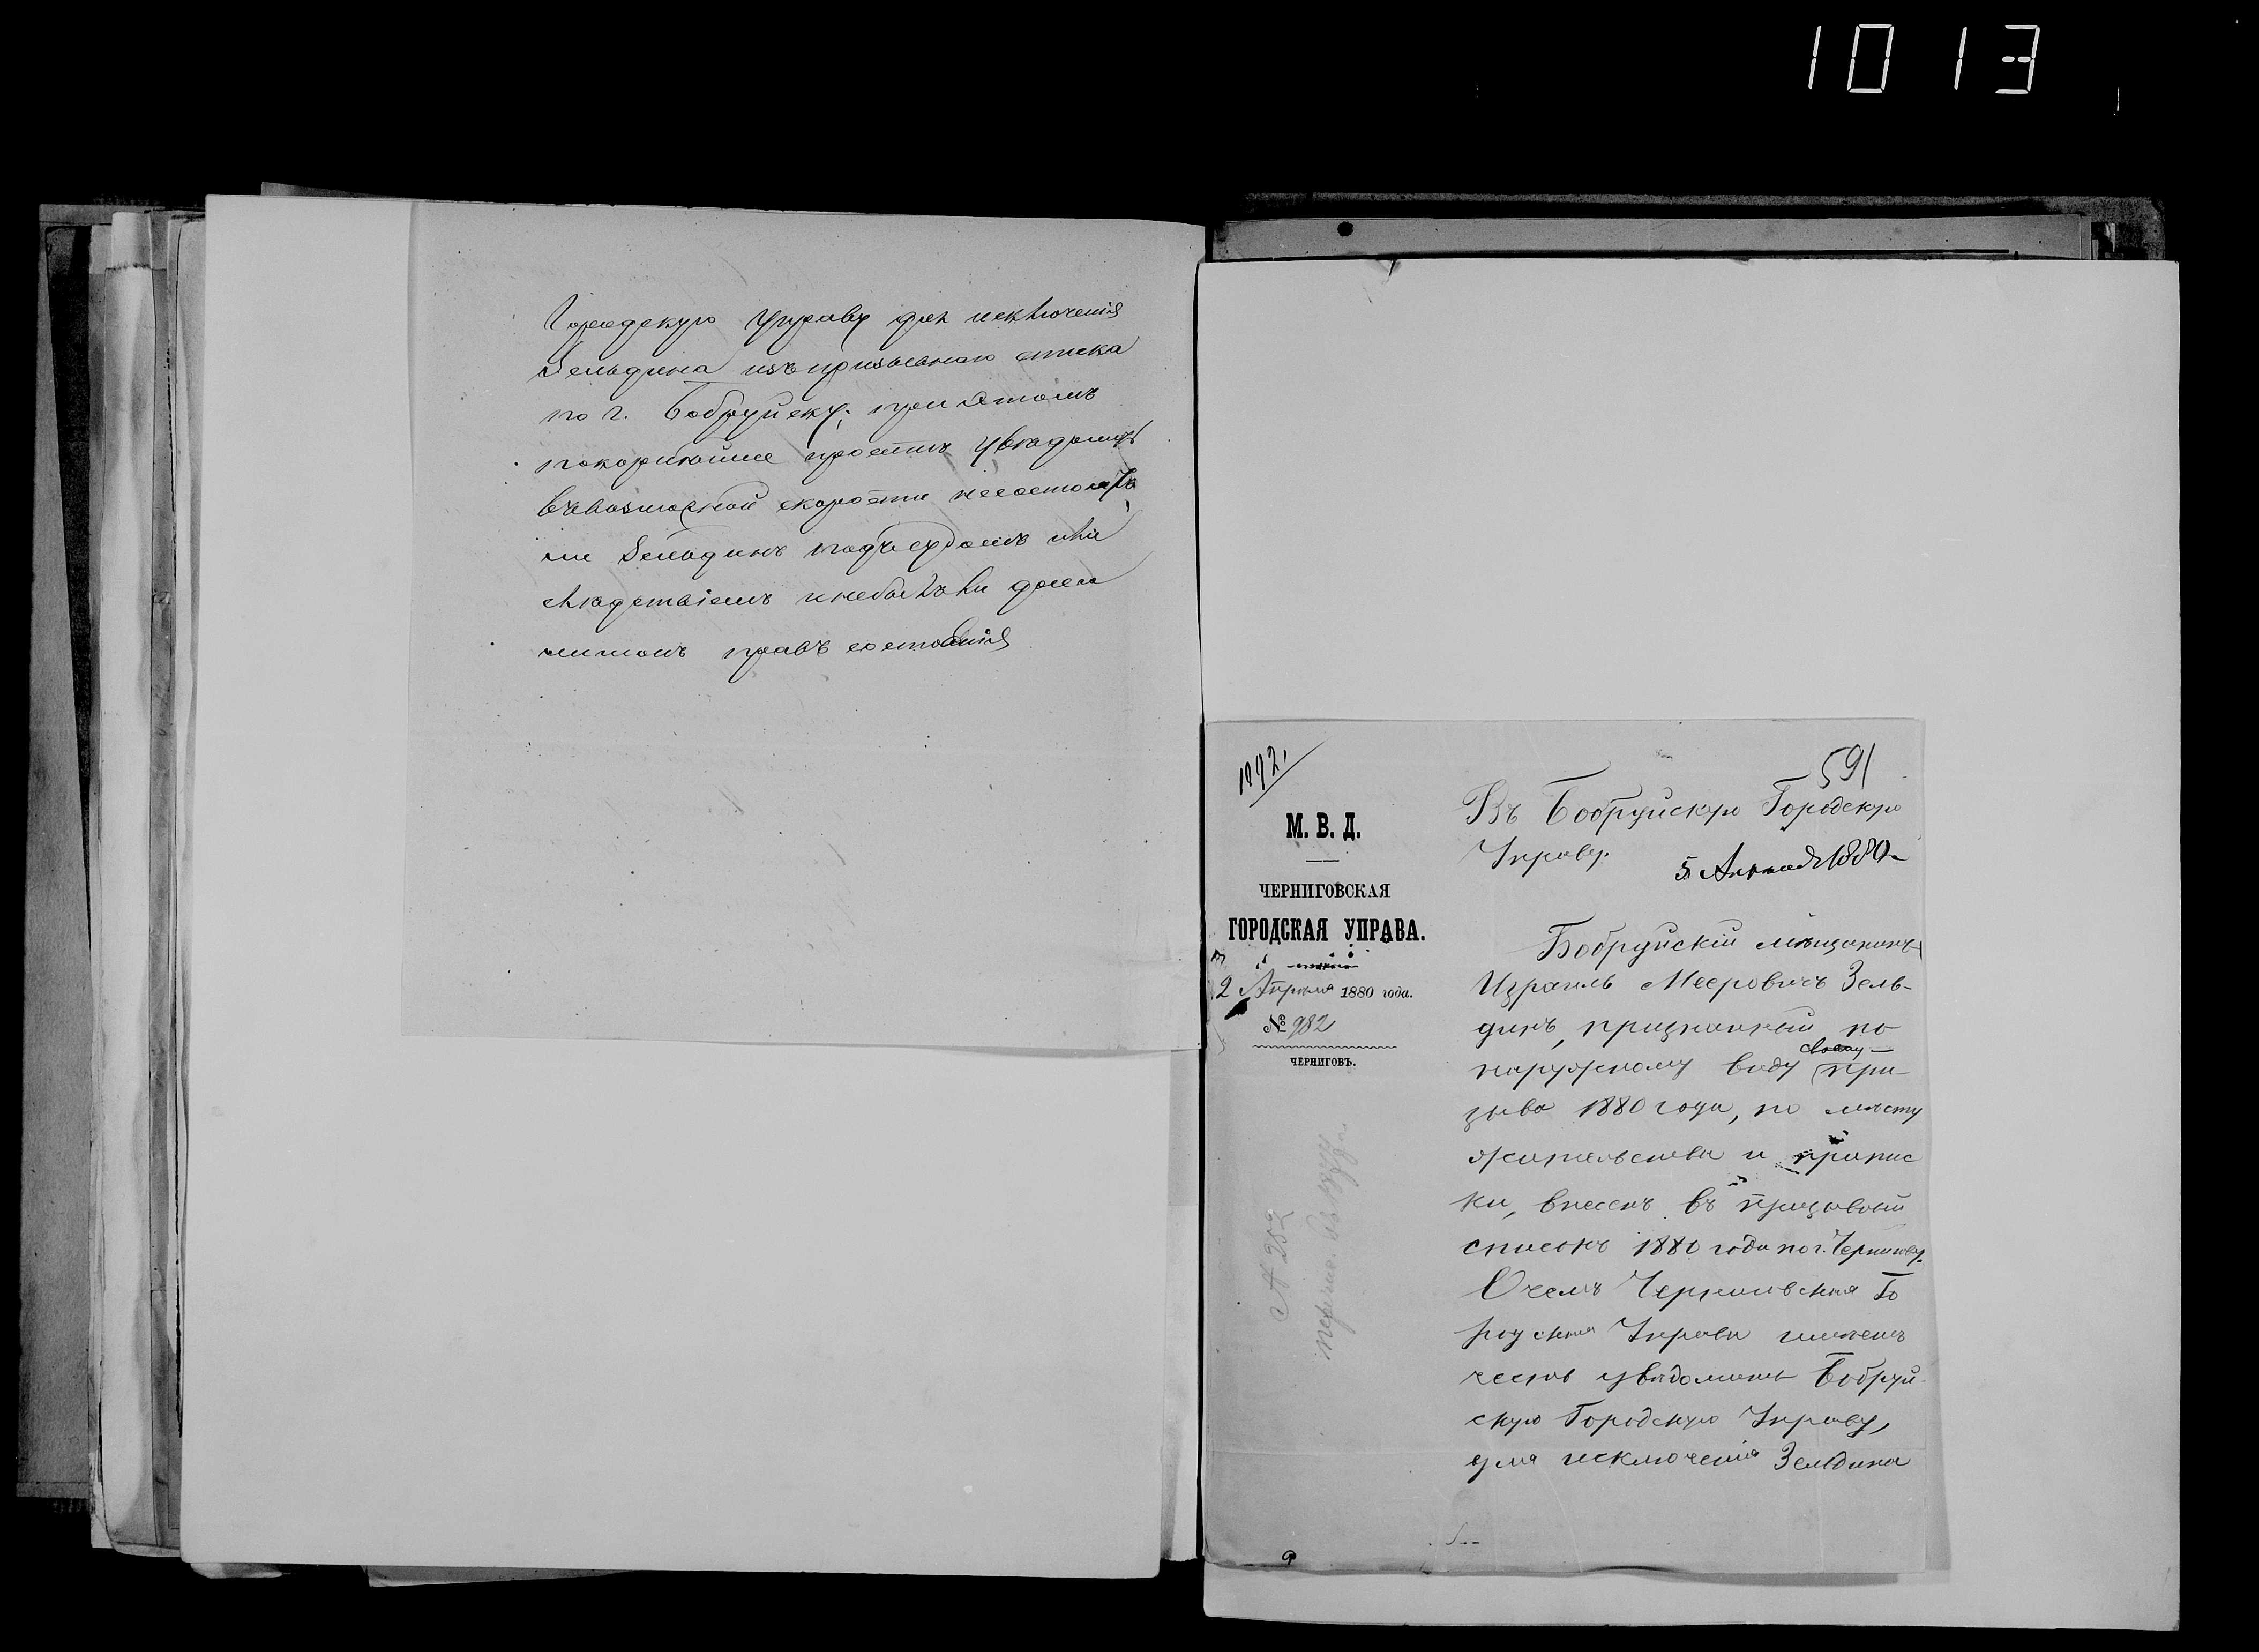 1013
Городскую Управу для исключенія
Зельдина изъ призывнаго списка
по г. Бобруйску; при этомъ
покорнѣйше проситъ увѣдомить
въ возможной скорости не состоитъ
ли Зельдинъ подъ судомъ или
слѣдствіемъ и не былъ ли
лишонъ правъ состоянія
591
М. В. Д.
ЧЕРНИГОВСКАЯ
ГОРОДСКАЯ УПРАВА.
2 Апрѣля 1880 года.
№ 982
ЧЕРНИГОВЪ.
Въ Бобруйскую Городскую
Управу.
5 Апрѣля 1880
Бобруйскій мѣщанинъ
Израиль Мееровичъ Зель-
динъ, признанный по
наружному виду при-
зыва 1880 года, по мѣсту
жительства и припис
ки, внесенъ въ призывной
списокъ 1880 года по г. Чернигову.
О чемъ Черниговская Го
родская Управа имѣетъ
честь увѣдомить Бобруй-
скую Городскую Управу,
для исключенія Зельдина